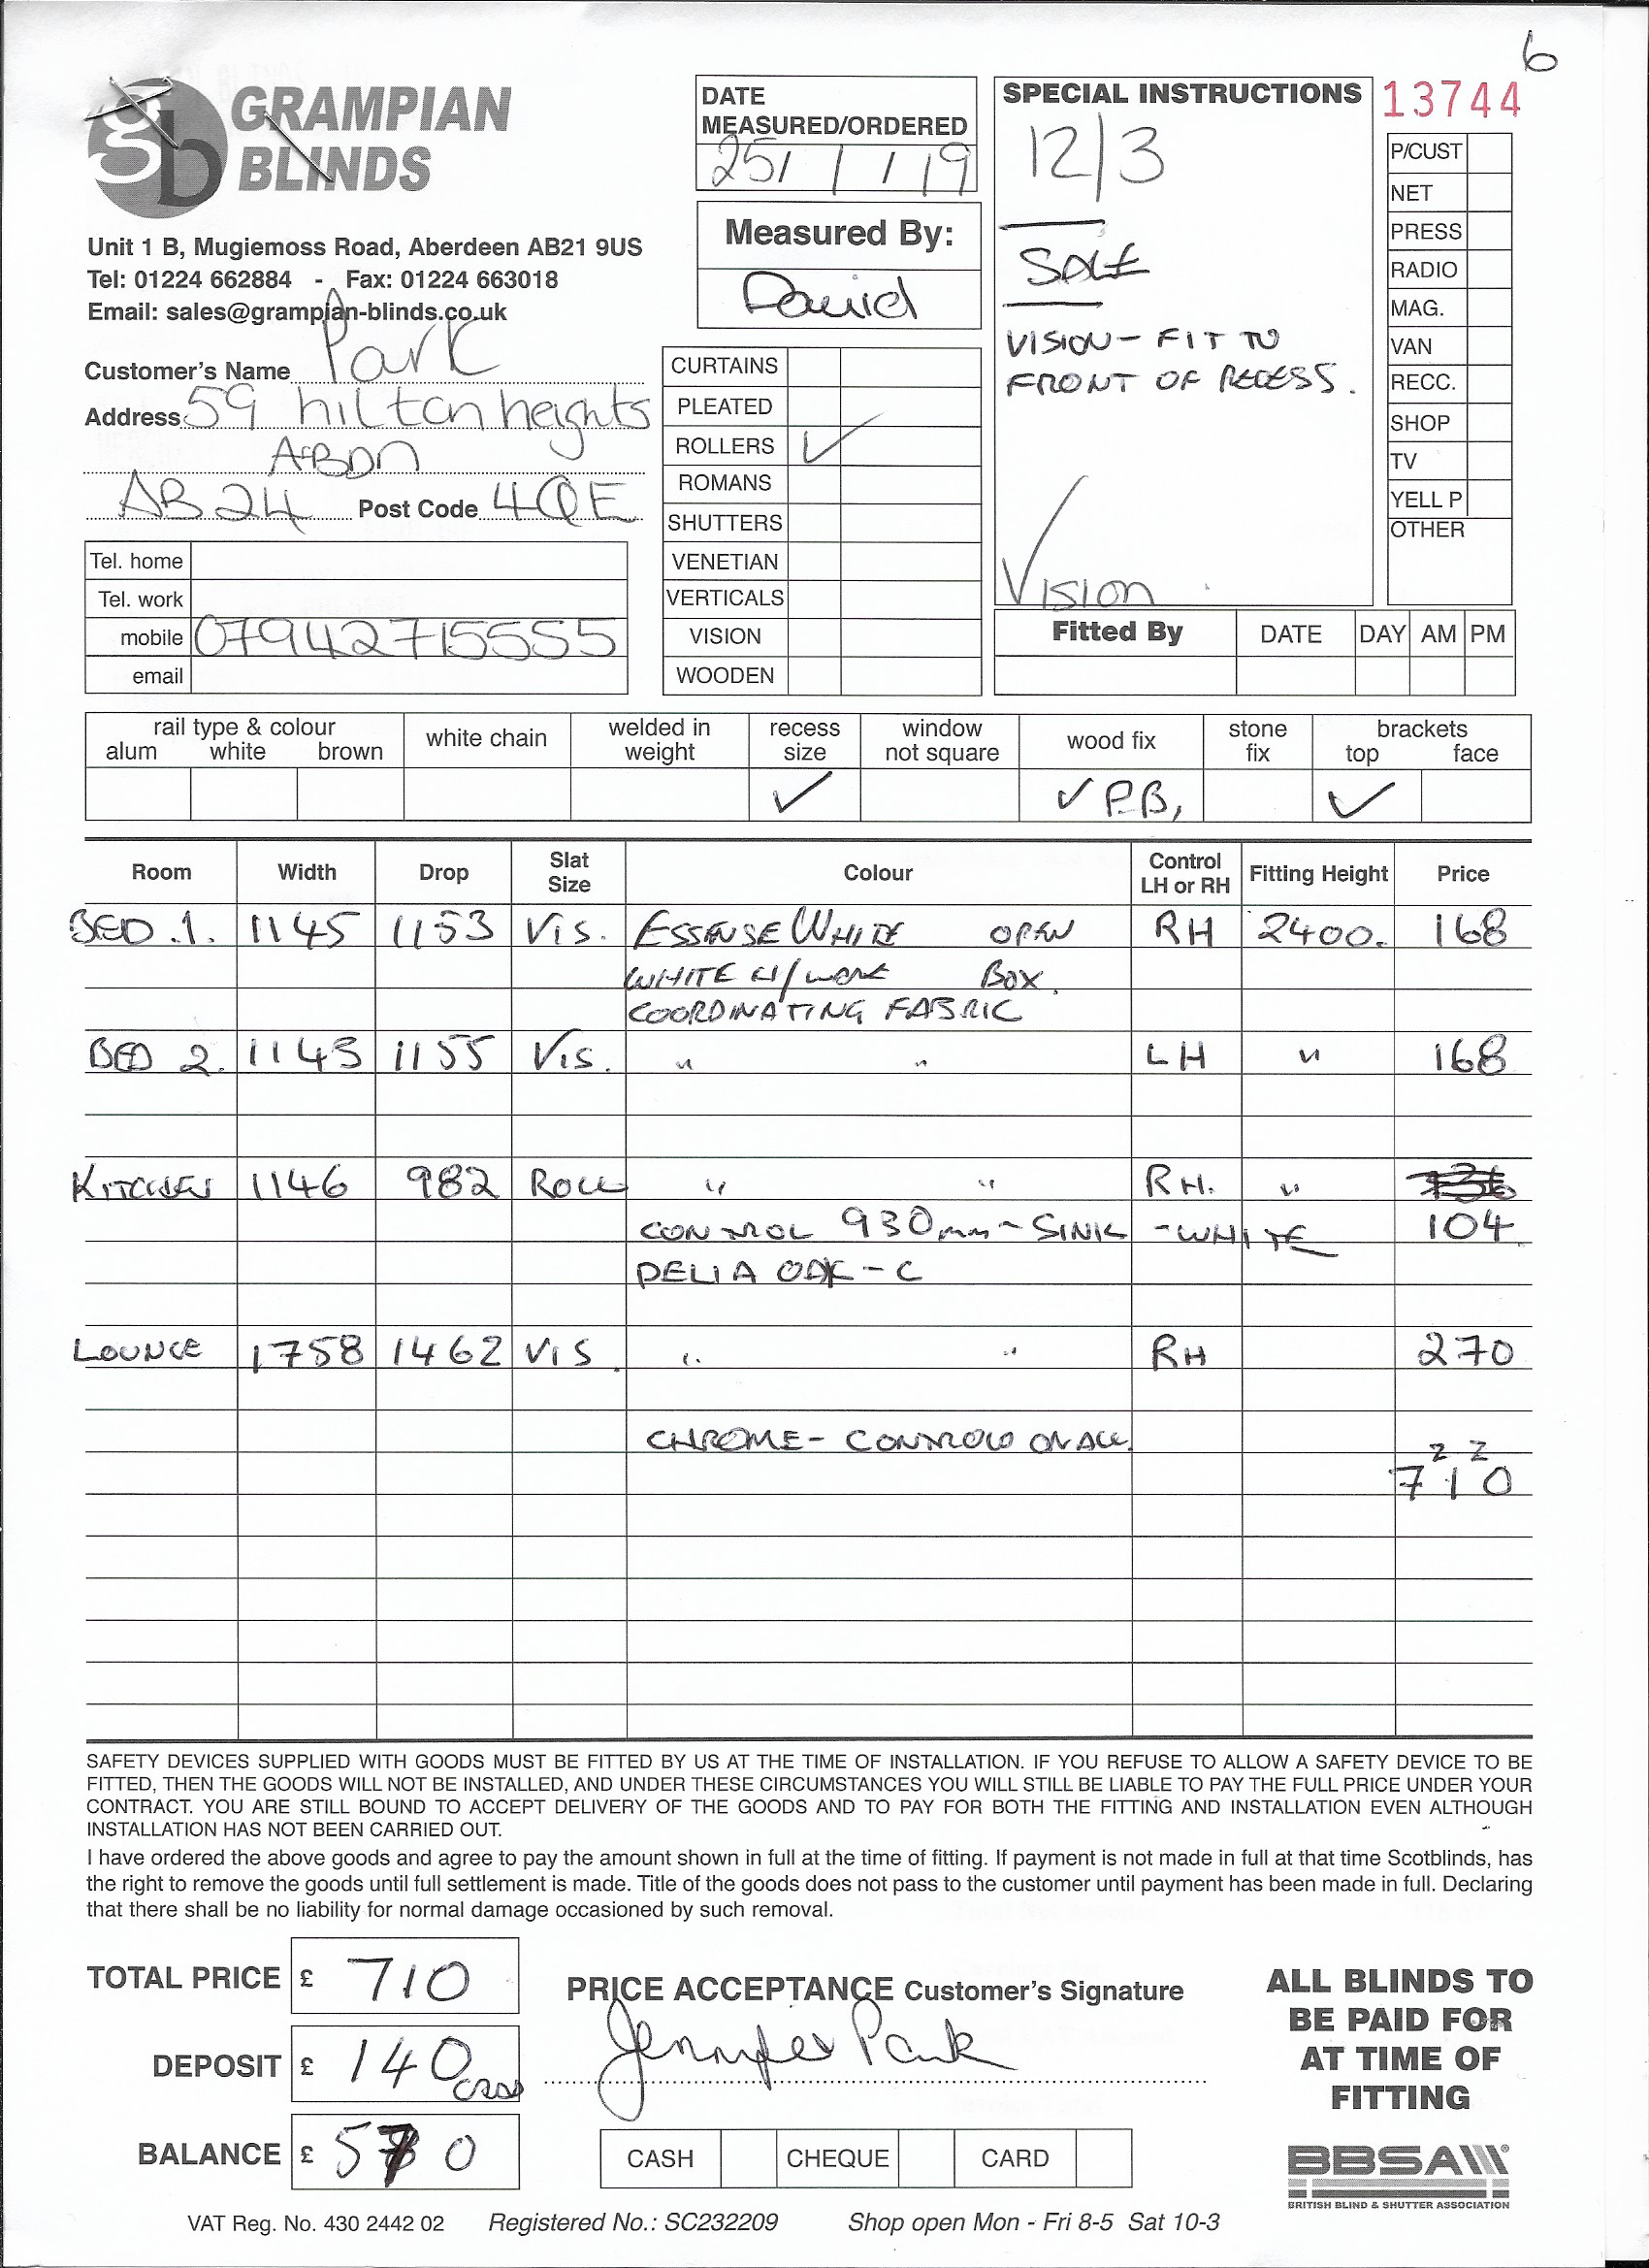 6
GRAMPIAN
BLINDS
Unit 1 B, Mugiemoss Road, Aberdeen AB21 9US
Tel: 01224 662884 - Fax: 01224 663018
Email: sales@grampian-blinds.co.uk
Customer's Name Park
Address 59 hilton heights
ABDN
AB24 Post Code 4QE
Tel. home
Tel. work
mobile 07942715555
email
DATE
MEASURED/ORDERED
25/ 1 / 19
Measured By:
David
CURTAINS
PLEATED
ROLLERS ✓
ROMANS
SHUTTERS
VENETIAN
VERTICALS
VISION
WOODEN
SPECIAL INSTRUCTIONS
12/3
SALE
VISION - FIT TO
FRONT OF RECESS.
✓
Vision
13744
P/CUST
NET
PRESS
RADIO
MAG.
VAN
RECC.
SHOP
TV
YELL P
OTHER
Fitted By DATE DAY AM PM
rail type & colour
alum white brown
white chain
welded in weight
recess size ✓
window not square
wood fix ✓ P.B,
stone fix
brackets
top face
✓
Room Width Drop Slat Size Colour Control LH or RH Fitting Height Price
BED .1. 1145 1153 VIS. ESSENSE WHITE OPEN RH 2400. 168
WHITE BOX.
COORDINATING FABRIC
BED 2. 1145 1155 VIS. " " LH " 168
KITCHEN 1146 982 ROLL " " RH. "
CONTROL 930mm - SINK - WHITE 104
DELIA OAK - C
LOUNGE 1758 1462 VIS. " " RH 270
CHROME - CONTROLS ON ALL.
2 2
710
SAFETY DEVICES SUPPLIED WITH GOODS MUST BE FITTED BY US AT THE TIME OF INSTALLATION. IF YOU REFUSE TO ALLOW A SAFETY DEVICE TO BE
FITTED, THEN THE GOODS WILL NOT BE INSTALLED, AND UNDER THESE CIRCUMSTANCES YOU WILL STILL BE LIABLE TO PAY THE FULL PRICE UNDER YOUR
CONTRACT. YOU ARE STILL BOUND TO ACCEPT DELIVERY OF THE GOODS AND TO PAY FOR BOTH THE FITTING AND INSTALLATION EVEN ALTHOUGH
INSTALLATION HAS NOT BEEN CARRIED OUT.
I have ordered the above goods and agree to pay the amount shown in full at the time of fitting. If payment is not made in full at that time Scotblinds, has
the right to remove the goods until full settlement is made. Title of the goods does not pass to the customer until payment has been made in full. Declaring
that there shall be no liability for normal damage occasioned by such removal.
TOTAL PRICE £ 710
DEPOSIT £ 140
BALANCE £ 570
PRICE ACCEPTANCE Customer's Signature
Jennifer Park
CASH CHEQUE CARD
ALL BLINDS TO
BE PAID FOR
AT TIME OF
FITTING
BBSA
BRITISH BLIND & SHUTTER ASSOCIATION
VAT Reg. No. 430 2442 02 Registered No.: SC232209 Shop open Mon - Fri 8-5 Sat 10-3